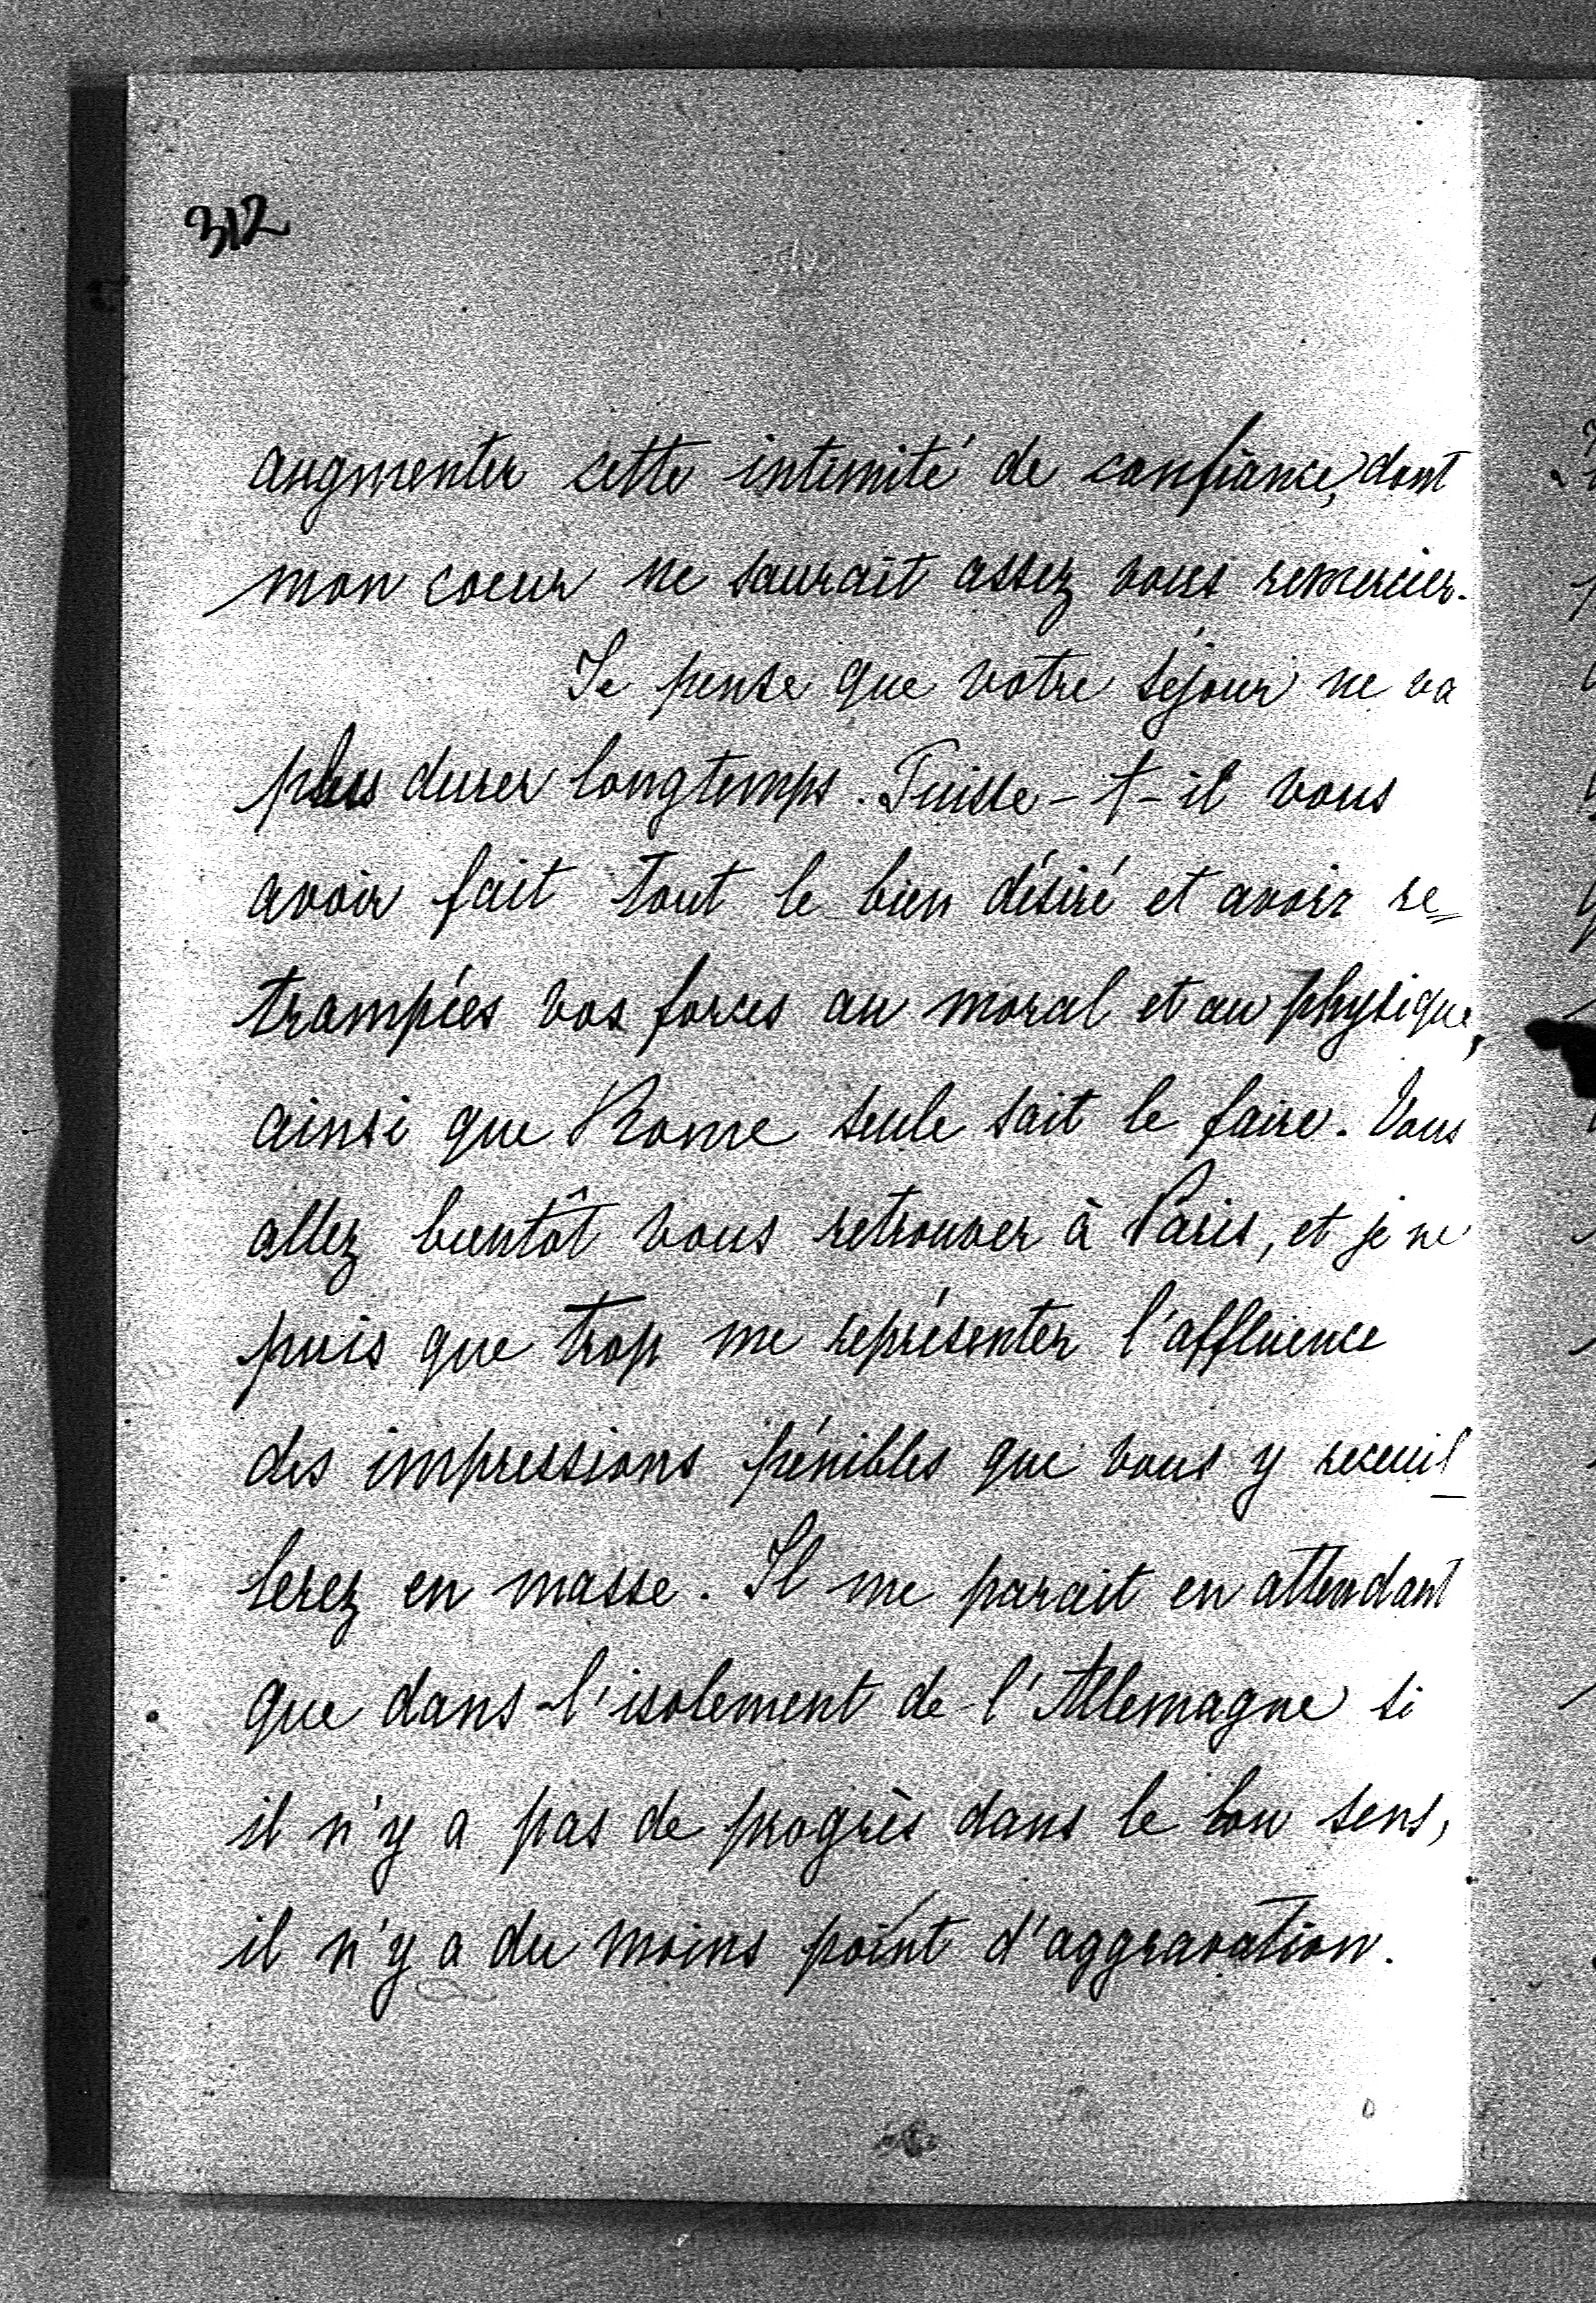 312
augmenter cette intimité de confiance, dont
mon coeur ne saurait assez vous remercier.
Je pense que votre séjour ne va
plus durer longtemps. Puisse-t-il vous
avoir fait tout le bien désiré et avoir re=
trampées vos forces au moral et au physique,
ainsi que Rome seule sait le faire. Vous
allez bientôt vous retrouver à Paris, et je ne
puis que trop me représenter l'affluence
des impressions pénibles que vous y receuil-
lerez en masse. Il me parait en attendant
que dans l'isolement de l'Allemagne si
il n'y a pas de progrès dans le bon sens,
il n'y a du moins point d'aggravation.